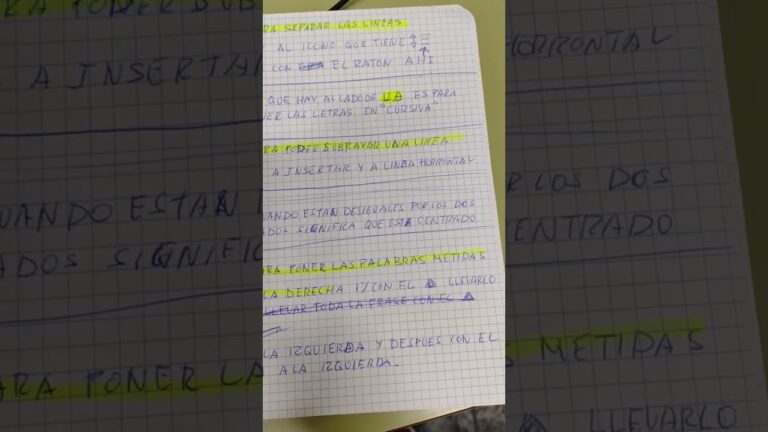 RA SEPARAR LAS LINEAS
AL ICONO QUE TIENE
CON EL RATON AHI
QUE HAY AL LADO DE UA ES PARA
NER LAS LETRAS EN "CURSIVA"
RA PODER SUBRAYAR UNA LINEA
A INSERTAR Y A LINEA HORIZONTAL
UANDO ESTAN DESIGUALES POR LOS DOS
ADOS SIGNIFICA QUE ESTA CENTRADO
ARA PONER LAS PALABRAS METIDAS
LA DERECHA 1º CON EL LLEVARLO
LLEVAR TODA LA FRASE CON EL
LA IZQUIERDA Y DESPUES CON EL
A LA IZQUIERDA.